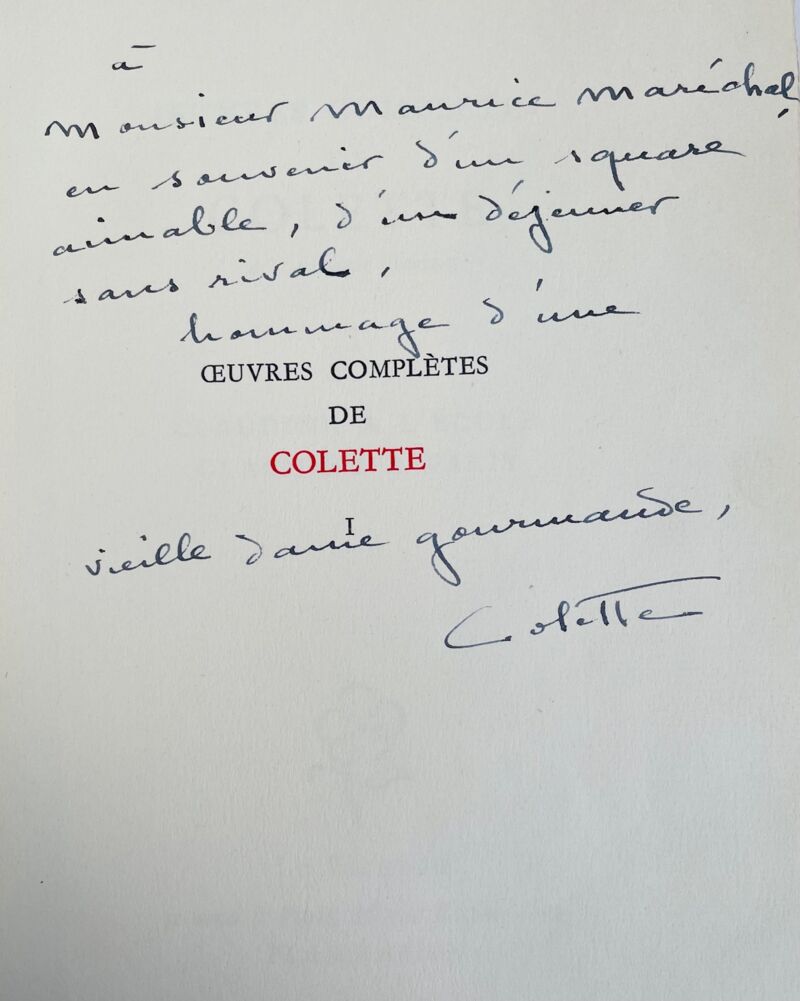 à
Monsieur Maurice Maréchal,
en souvenir d'un square
aimable, d'un déjeuner
sans rival,
hommage d'une
ŒUVRES COMPLÈTES
DE
COLETTE
I
vieille dame gourmande,
Colette